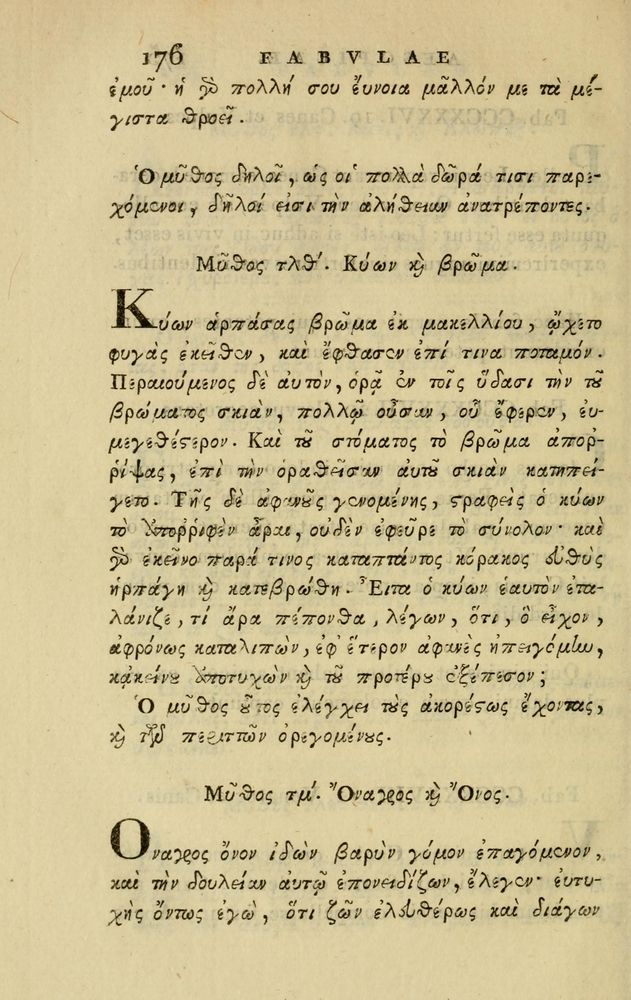 176 FABVLAE
ἐμοῦ· ἡ γὰρ πολλή σου ἔυνοια μᾶλλόν με τὰ μέ-
γιστα θροεῖ.
Ὁ μῦθος δηλοῖ, ὡς οἱ πολλὰ δῶρά τισι παρε-
χόμενοι, δῆλοί εἰσι τὴν ἀλήθειαν ἀνατρέποντες.
Μῦθος τλθʹ. Κύων καὶ βρῶμα.
Κύων ἁρπάσας βρῶμα ἐκ μακελλίου, ᾤχετο
φυγὰς ἐκεῖθεν, καὶ ἔφθασεν ἐπί τινα ποταμόν.
Περαιούμενος δὲ αὐτὸν, ὁρᾷ ἐν τοῖς ὕδασι τὴν τοῦ
βρώματος σκιὰν, πολλῷ οὖσαν, οὗ ἔφερεν, ἐυ-
μεγεθέστερον. Καὶ τοῦ στόματος τὸ βρῶμα ἀποῤ-
ῥίψας, ἐπὶ τὴν ὁραθεῖσαν αὐτοῦ σκιὰν κατηπεί-
γετο. Τῆς δὲ ἀφανοῦς γενομένης, στραφεὶς ὁ κύων
τὸ ἀποῤῥιφὲν ἆραι, οὐδὲν ἐφεῦρε τὸ σύνολον· καὶ
γὰρ ἐκεῖνο παρά τινος καταπτάντος κόρακος εὐθὺς
ἡρπάγη καὶ κατεβρώθη. Εἶτα ὁ κύων ἑαυτὸν ἐτα-
λάνιζε, τί ἄρα πέπονθα, λέγων, ὅτι, ὃ εἶχον,
ἀφρόνως καταλιπὼν, ἐφ' ἕτερον ἀφανὲς ἠπειγόμην,
κἀκείνου ἀποτυχὼν καὶ τοῦ προτέρου ἐξέπεσον;
Ὁ μῦθος οὗτος ἐλέγχει τοὺς ἀκορέστως ἔχοντας,
καὶ τῶν περιττῶν ὀρεγομένους.
Μῦθος τμʹ. Ὄναγρος καὶ Ὄνος.
Οναγρος ὄνον ἰδὼν βαρὺν γόμον ἐπαγόμενον,
καὶ τὴν δουλείαν αὐτῷ ἐπονειδίζων, ἔλεγεν· ἐυτυ-
χὴς ὄντως ἐγὼ, ὅτι ζῶν ἐλευθέρως καὶ διάγων